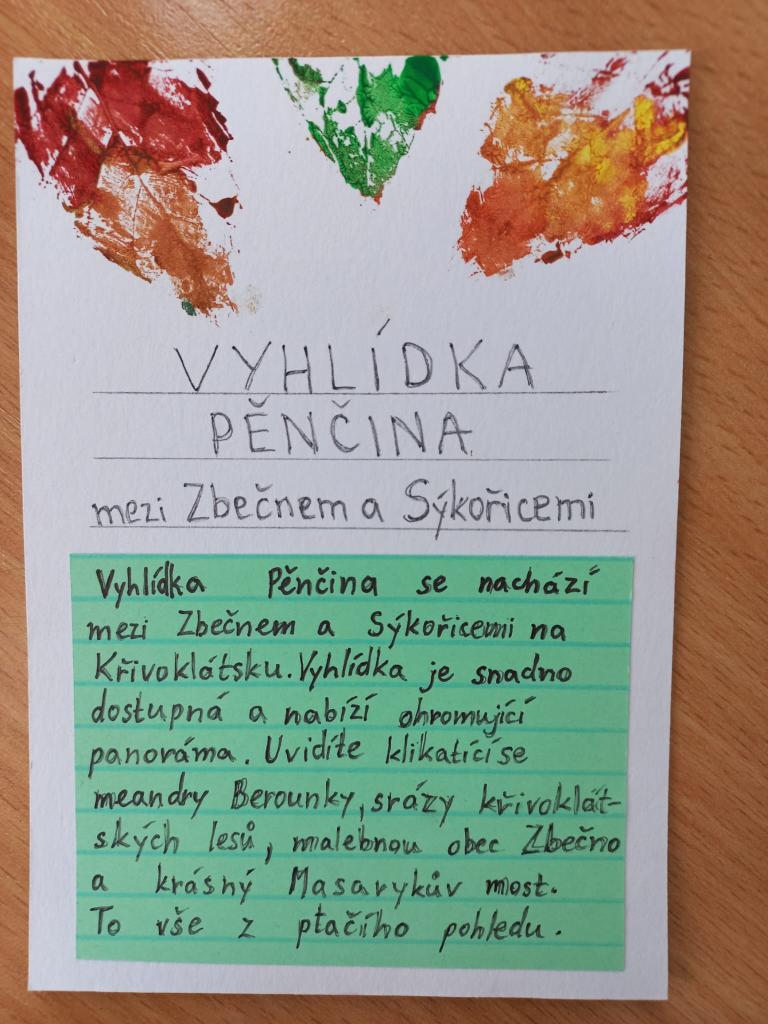 VYHLÍDKA
PĚNČINA
mezi Zbečnem a Sýkořicemi
Vyhlídka Pěnčina se nachází
mezi Zbečnem a Sýkořicemi na
Křivoklátsku. Vyhlídka je snadno
dostupná a nabízí ohromující
panoráma. Uvidíte klikatící se
meandry Berounky, srázy křivoklát-
ských lesů, malebnou obec Zbečno
a krásný Masarykův most.
To vše z ptačího pohledu.